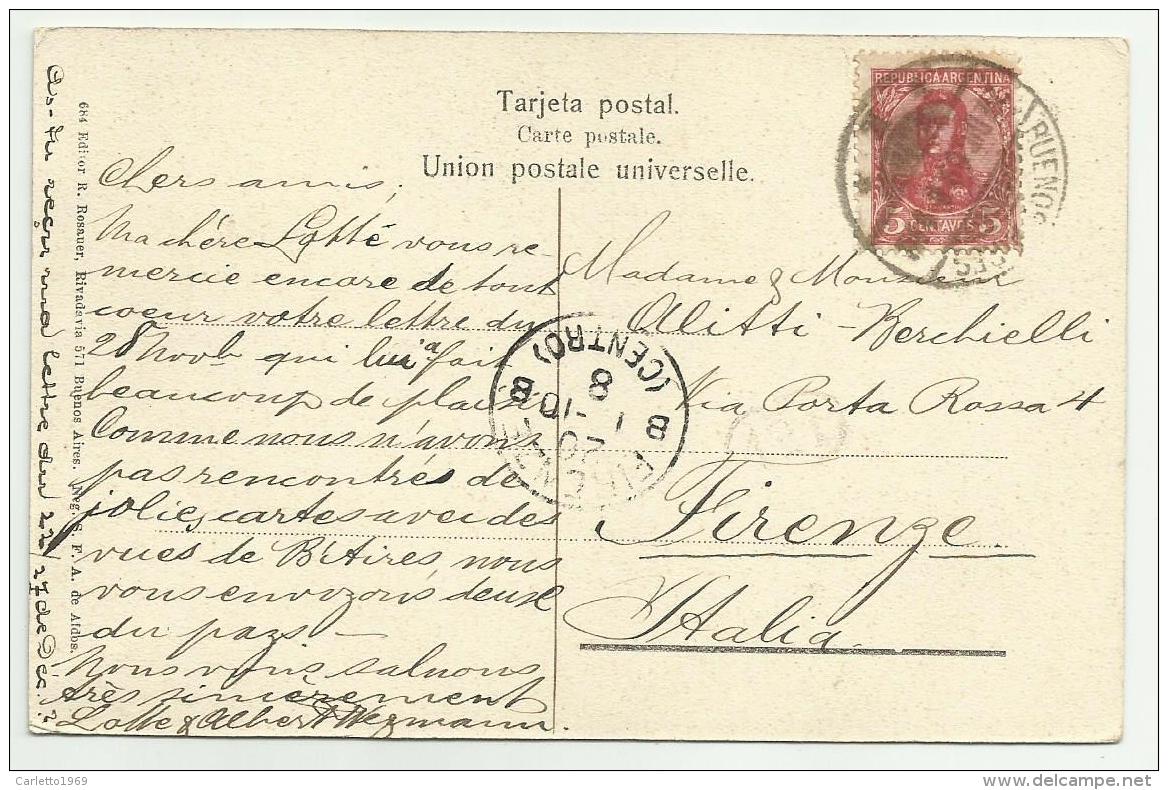 Tarjeta postal.
Carte postale.
Union postale universelle.
REPUBLICA ARGENTINA
5 CENTAVOS 5
BUENOS
Chers amis,
Ma chère Lotte vous re-
mercie encore de tout
coeur votre lettre du
28 Novb qui lui a fait
beaucoup de plaisir
Comme nous n'avons
pas rencontrés de
jolies cartes avec des
vues de B'Aires, nous
vous envoyons deux
du pays —
Nous vous saluons
très sincèrement
Lotte & Albert Wegmann.
As-tu reçu ma lettre du 22/27 de Déc.?
684 Editor R. Rosauer, Rivadavia 571 Buenos Aires. Neg. S. F. A. de Afdos.
Madame & Monsieur
Alitti-Berchielli
Via Porta Rossa 4
Firenze
Italia
FIRENZE
(CENTRO)
8
8
1 - 10
20
8
Carletto1969
delcampe.net